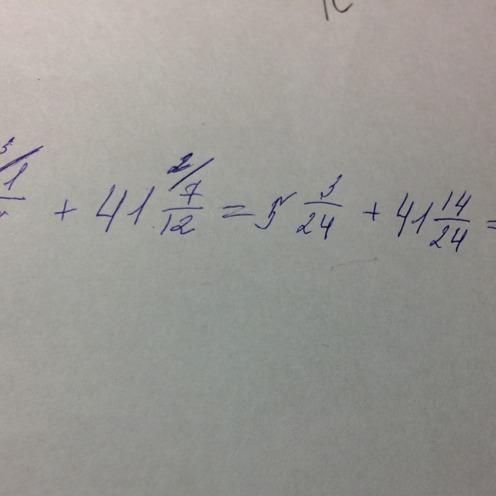 1 + 41 7/12 = 5 3/24 + 41 14/24 =